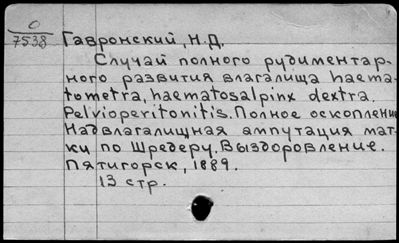 О
7538
Гавронский, Н.Д.
Случай полного рудиментар-
ного развития влагалища haema-
tometra, haematosalpinx dextra.
Pelvioperitonitis. Полное оскопление
Надвлагалищная ампутация мат-
ки по Шредеру. Выздоровление.
Пятигорск, 1889.
13 стр.